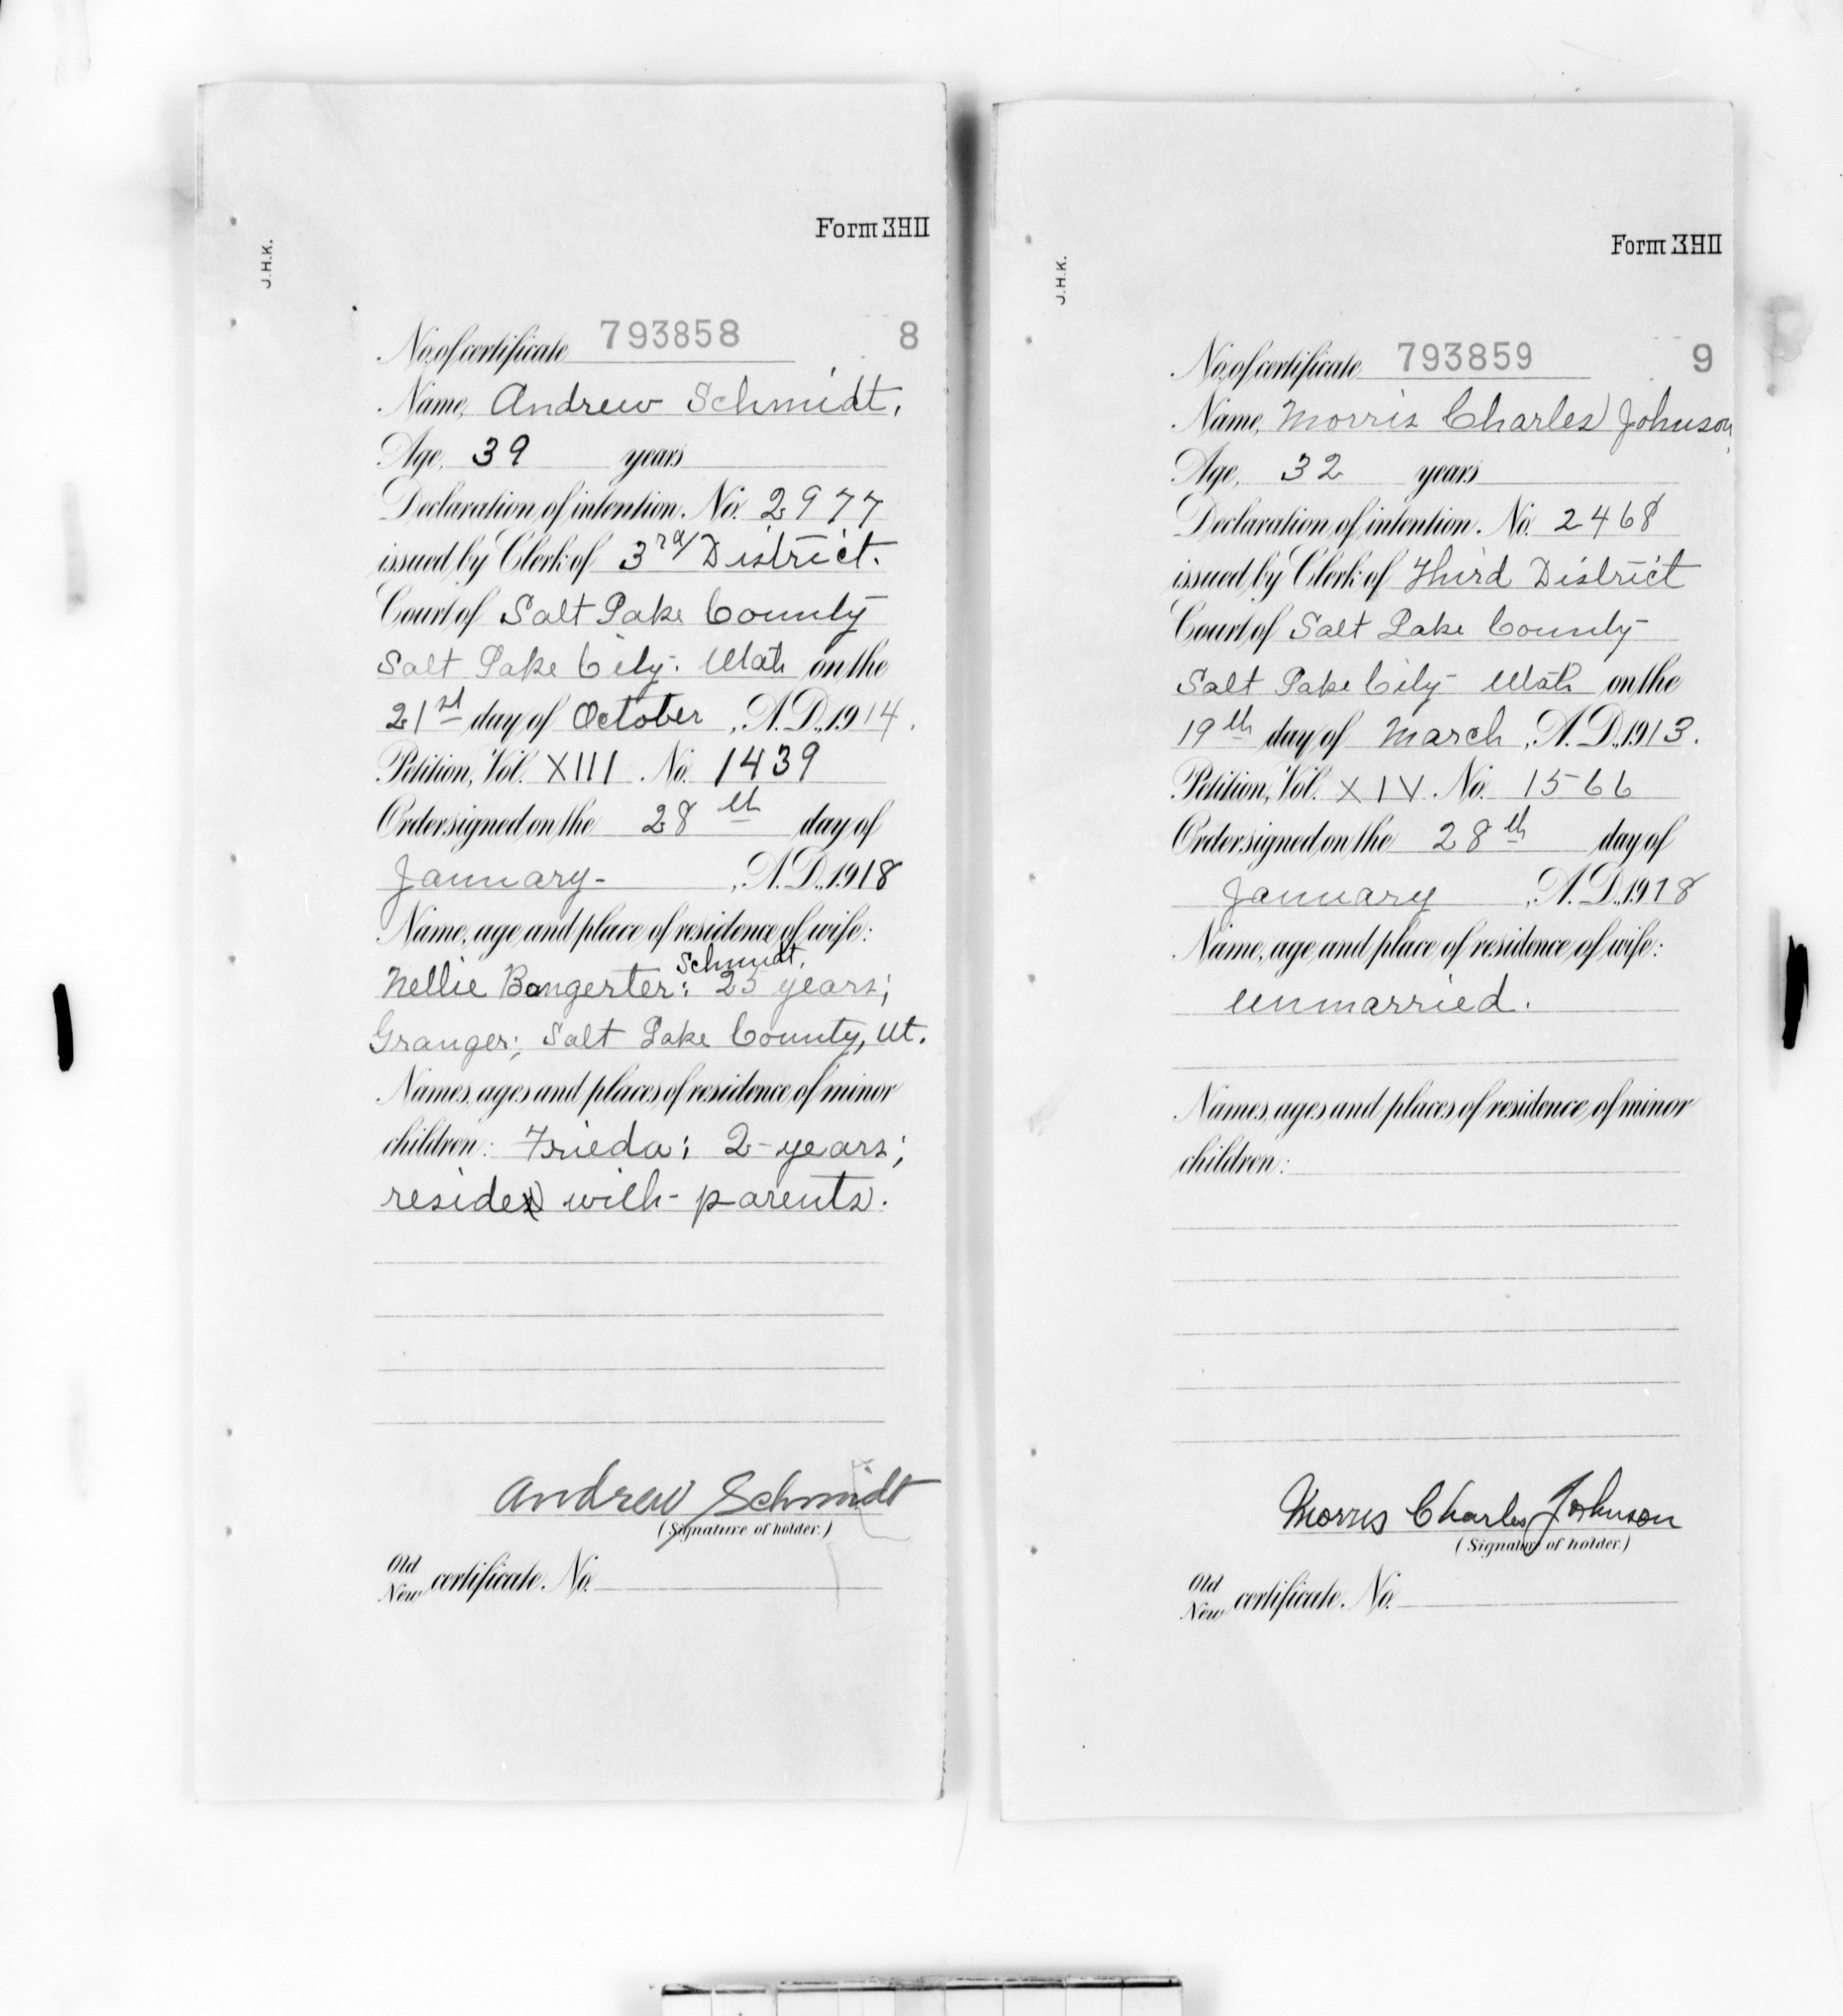 Form 3911
J.H.K.
No. of certificate 793858 8
Name, Andrew Schmidt.
Age, 39 years
Declaration of intention, No. 2977
issued by Clerk of 3rd District.
Court of Salt Lake County
Salt Lake City. Utah on the
21st day of October, A.D., 1914.
Petition, Vol. XIII No. 1439
Order signed on the 28th day of
January- , A.D., 1918
Name, age and place of residence of wife:
Schmidt.
Nellie Bangerter: 25 years;
Granger; Salt Lake County, Ut.
Names, ages and places of residence of minor
children: Frieda; 2-years;
resides with- parents.
Andrew Schmidt
(Signature of holder.)
Old
New certificate, No.
Form 3911
J.H.K.
No. of certificate 793859 9
Name, Morris Charles Johnson,
Age, 32 years
Declaration of intention, No. 2468
issued by Clerk of Third District
Court of Salt Lake County-
Salt Lake City- Utah on the
19th day of March, A.D., 1913.
Petition, Vol. XIV. No. 1566
Order signed on the 28th day of
January, A.D., 1918
Name, age and place of residence of wife:
Unmarried.
Names, ages and places of residence of minor
children:
Morris Charles Johnson
(Signature of holder.)
Old
New certificate, No.